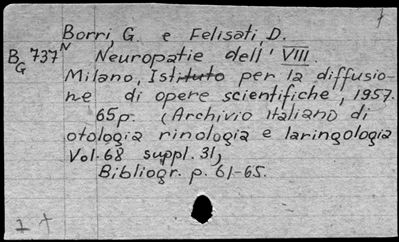 Borri, G. e Felisati, D.
B G 737 N Neuropatie dell' VIII.
Milano, Istituto per la diffusio-
ne di opere scientifiche, 1957.
65p. (Archivio Italiano di
otologia rinologia e laringologia
Vol. 68 suppl. 31)
Bibliogr. p. 61-65.